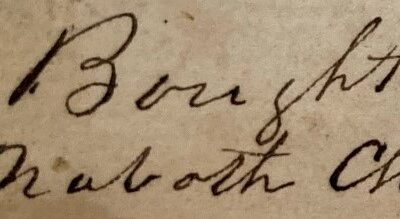 Bought
Naboth Ch